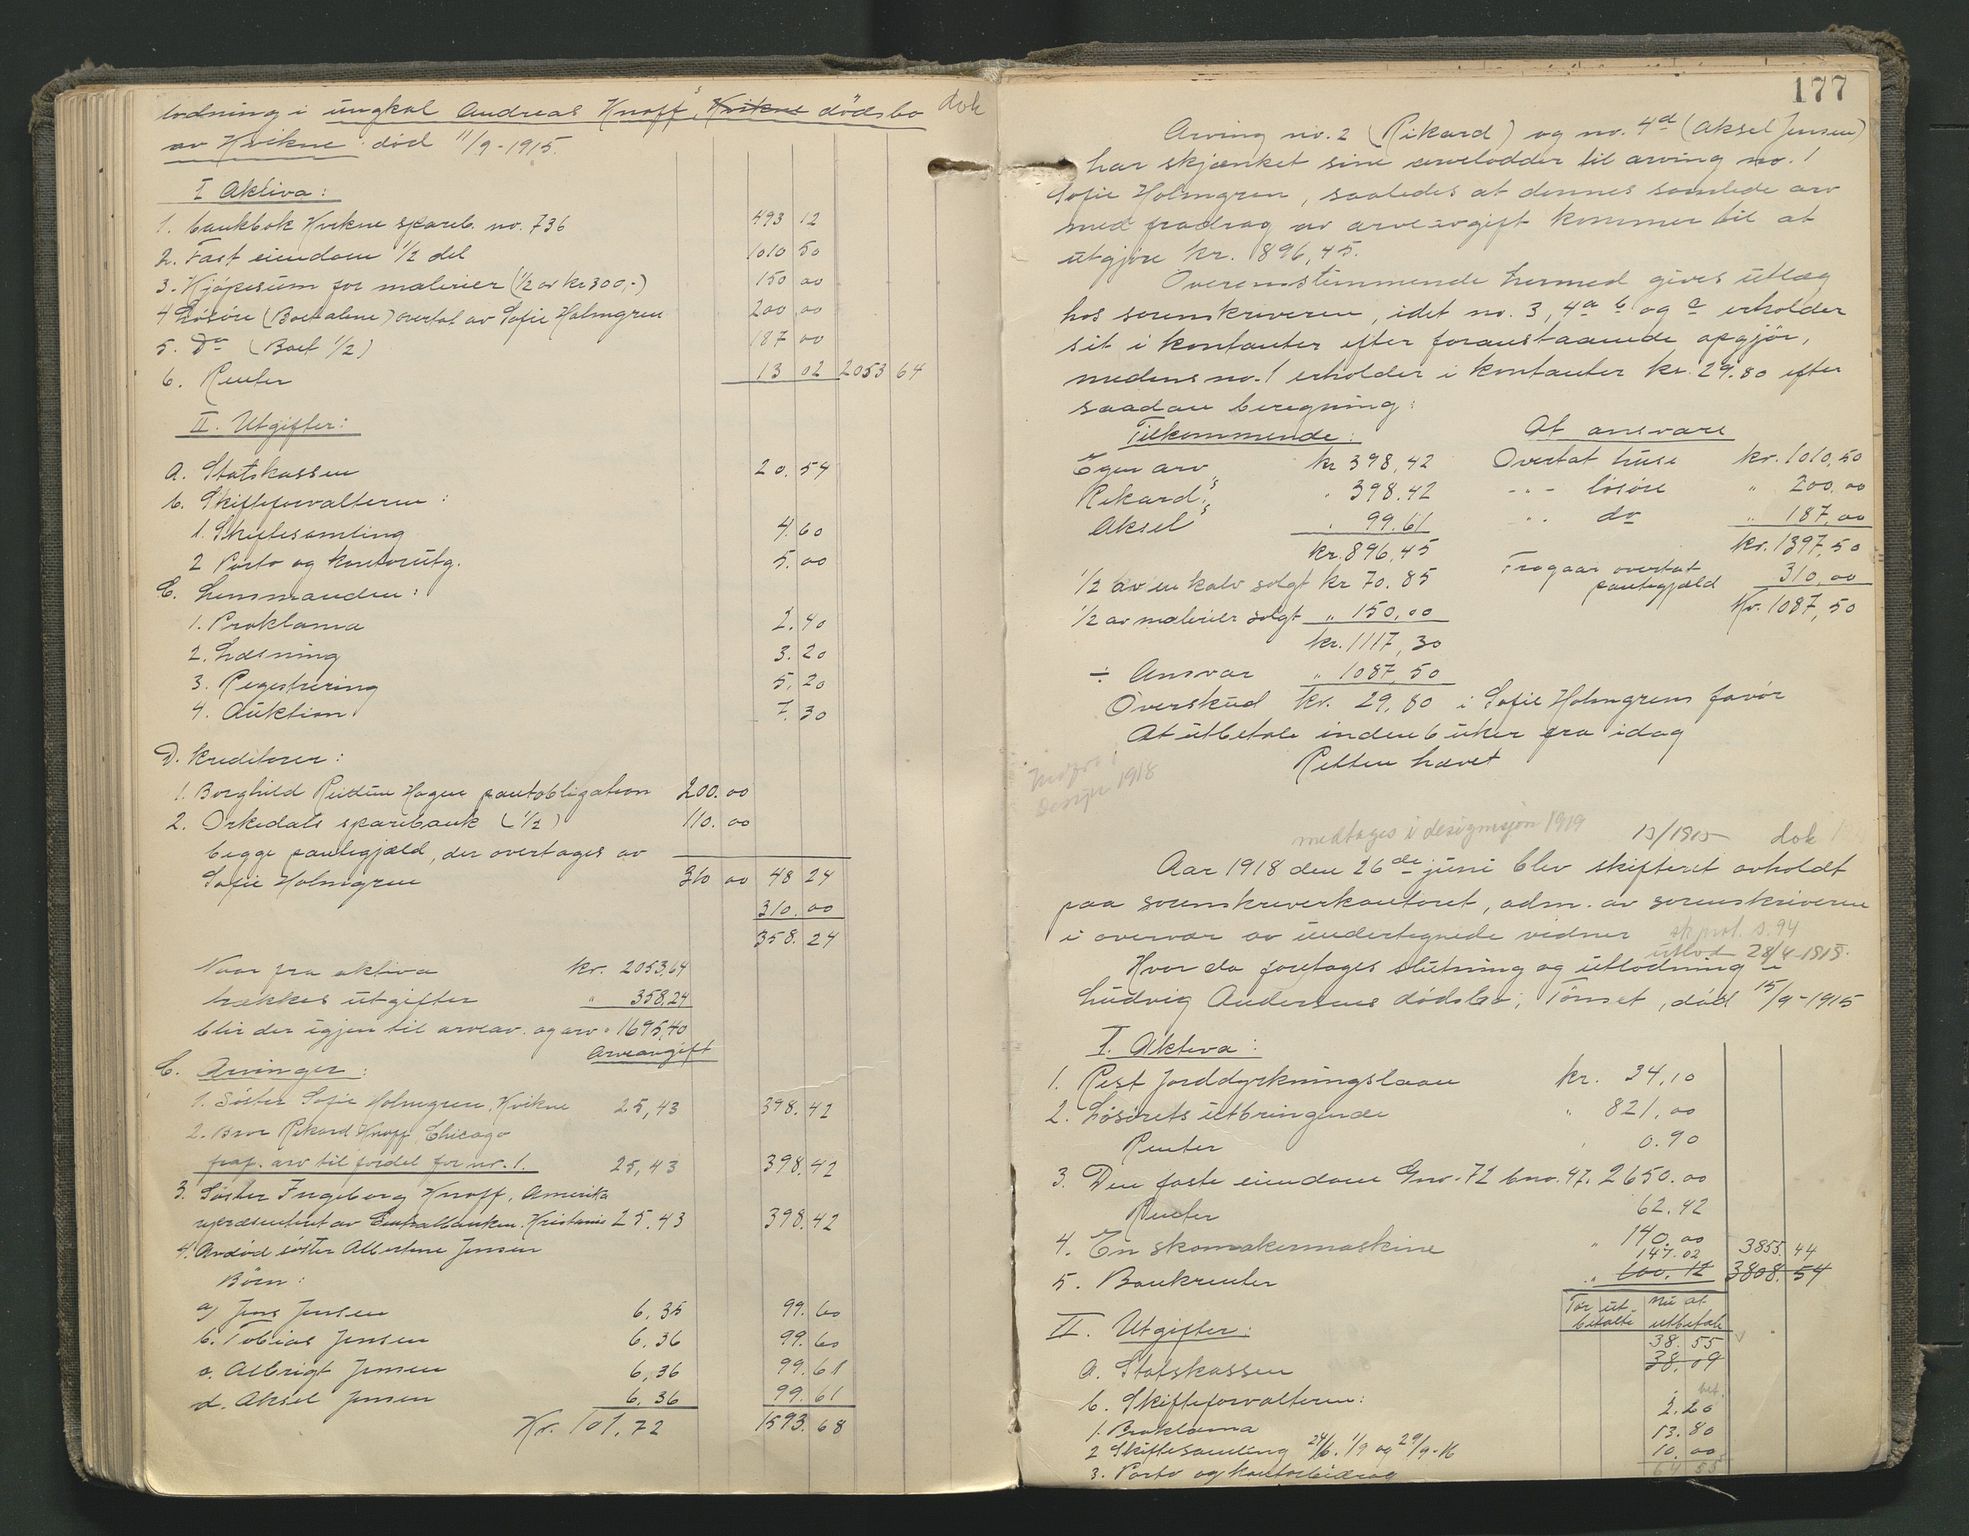 lodning i ungkal Andreas Knoff's, Kvikne dödsbo dok
av Kvikne död 11/9-1915.
I Aktiva:
1. bankbok Kvikne spareb. no. 736 493 12
2. Fast eiendom 1/2 del 1010 50
3. Kjöpesum for materier (1/2 av kr 300,-) 150 00
4 Lösöre (Boet alene) overtat av Sofie Holmgren 200 00
5. Do (Boet 1/2) 187 00
6. Renter 13 02 2053 64
II. Utgifter:
A. Statskassen 20. 54
b. Skifteforvalteren:
1. Skiftesamling 4. 60
2 Porto og kontorutg. 5. 00
C. Lensmanden:
1. Proklama 2. 40
2. Læsning 3. 20
3. Registrering 5. 20
4. Auktion 7. 30
D. Kreditorer:
1. Borghild Reidun Hagen pantobligation 200. 00
2. Orkedals sparebank (1/2) 110. 00
begge pantegjæld, der overtages av
Sofie Holmgren 310 00 48 24
310. 00
358. 24
Naar fra aktiva kr. 2053,64
trækkes utgifter " 358,24
blir der igjen til arveav. og arv " 1695,40
Arveavgift
C. Arvinger:
1. Söster Sofie Holmgren, Kvikne 25,43 398. 42
2. Bror Rikard Knoff, Chicago
fraf. arv til fordel for nr. 1. 25,43 398. 42
3. Söster Ingeborg Knoff, Amerika
repræsentert av Centralbanken, Kristania 25. 43 398. 42
4. Avdöd söster Albertine Jensen
Börn:
a) Jens Jensen 6,35 99. 60
b. Tobias Jensen 6,36 99. 60
c. Albrigt Jensen 6,36 99. 61
d. Aksel Jensen 6,36 99. 61
Kr. 101,72 1593. 68
177
Arving no. 2 (Rikard) og no. 4d (Aksel Jensen)
har skjænket sine arvelodder til arving no. 1
Sofie Holmgren, saaledes at dennes samlede arv
med fradrag av arveavgift kommer til at
utgjøre kr. 896,45.
Overensstemmende hermed gives utlæg
hos sorenskriveren, idet no. 3, 4a b og c erholder
sit i kontanter efter foranstaaende opgjör,
medens no. 1 erholder i kontanter kr. 29.80 efter
saadan beregning:
Tilkommende: At ansvare
Egen arv kr 398,42 Overtat huse kr. 1010,50
Rikard's " 398.42 -"- lösöre " 200,00
Aksel's " 99.61 " " do " 187,00
kr. 896,45 kr. 1397,50
1/2 av en kalv solgt kr 70.85 Fragaar overtat pantegjæld 310,00
1/2 av materier solgt " 150,00 Kr. 1087,50
kr. 1117,30
÷ Ansvar " 1087,50
Overskud kr. 29,80 i Sofie Holmgrens favör
At utbetale inden 6 uker fra idag
Retten hævet
1918
medtages i designasjon 1919 13/1915 dok
Aar 1918 den 26de juni blev skifteret avholdt
paa sorenskriverkontoret, adm. av sorenskriveren
i overvær av undertegnede vidner sk.prot. s. 94
utlod 28/4-1918.
Hvor da foretages slutning og utlodning i
Ludvig Andersens dödsbo, Tönset, död 15/9-1915
I. Aktiva:
1. Rest Jorddyrkningslaan kr. 34,10
2. Lösörets utbringende " 821,00
Renter " 0.90
3. Den faste eiendom Gno. 72 bno. 47. 2650.00
Renter 62.42
4. En skomakermaskine " 140.00
147.02 3855. 44
5. Bankrenter " 100.12 3808. 54
För utbetalte Nu at utbetale
II. Utgifter:
38. 55
a. Statskassen 38. 09
b. Skifteforvalteren: bet.
1. Proklama 2. 20
2 Skiftesamling 24/6. 1/9 og 29/9-16 13. 80
3. Porto og kontorbidrag 10. 00
64 55